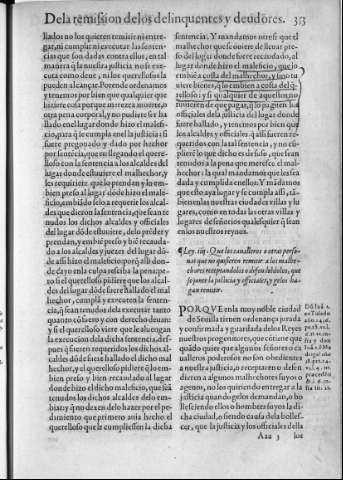 De la remission de los delinquentes y deudores. 313
llados no los quieren remitir ni entre-
gar, ni cumplir ni executar las senten-
cias que son dadas contra ellos, en tal
manera q̃ la nuestra justicia no se exe-
cuta como deue, ni los querellosos la
pueden alcançar. Porende ordenamos
y tenemos por bien que qualquier que
hiziere cosa porque merezca muerte, o
otra pena corporal, y no pudiere ser ha
llado en el lugar donde hizo el malefi-
cio, para q̃ se cumpla en el la justicia: si
fuere pregonado y dado por hechor
por sentẽcia, que en llegando el quere-
lloso con la sentencia a los alcaldes del
lugar donde estouiere el malhechor, y
les requiriere que lo prendan y lo em-
bien preso al lugar dõde hizo el male-
ficio, embiãdo selo a requerir los alcal-
des que dieron la sentencia, que sean te
nudos los dichos alcaldes y officiales
del lugar dõ de estouiere, de lo prẽder y
prendan, y embiẽ preso y biẽ recauda-
do a los alcaldes y juezes del lugar dõ-
de assi hizo el maleficio
por el querelloso pidiere que los alcal-
des del lugar dõ de fuere hallado el mal
hechor, complã y executen la senten-
cia, q̃ sean tenudos de la executar tanto
quanto cõ fuero y con derecho deuan:
y si el querelloso viere que le aluengan
la execucion de la dicha sentencia, des-
pues q̃ fueren requeridos los dichos al-
caldes dõ de fuere hallado el dicho mal
hechor, y el querelloso pidiere q̃ lo em-
bien preso y bien recaudado al lugar
donde hizo el dicho maleficio, que seã
tenudos los dichos alcaldes de lo em-
biar: y q̃ no dexen de lo hazer por el pe-
dimiento que primero ania hecho el
querelloso que le cumpliessen la dicha
sentencia. Y mandamos otrosi que el
malhechor que se ouiere de lleuar pre-
so del lugar donde fuere recaudado, al
lugar donde hizo el maleficio, que lo
embiẽ a costa del malhechor, y sino tu
uiere bienes, q̃ lo embien a costa del q̃-
relloso: y si qualquier de aquellos no
tuuieren de que pagar, q̃ lo paguen los
officiales de la justicia del lugar donde
fuere hallado, y tenemos por bien que
los alcaldes y officiales q̃ assi fueren re-
queridos con la tal sentencia, y no cũ-
pliere lo que dicho es de suso, que sean
tenudos a la pena que merece el mal-
hechor: la qual mandamos que les sea
dada y cumplida en ellos. Y mãdamos
que esto aya lugar y se cumpla assi, tã-
bien en las nuestras ciudades villas y lu
gares, como en todas las otras villas y
lugares de señorios qualesquier q̃ sean
de nuestros reynos.
¶ Ley. iiij. Que los caualleros o otras perso-
nas que no quisieren remitir a los malhe-
chores receptandolos o defendiẽdolos, que
se ponte la justicia y officiales, y gelos ha-
gan remitir.
PORQVE en la muy noble ciudad
de Seuilla tienen ordenança jurada
y confirmada y guardada de los Reyes
nuestros progenitores, que cõ tiene que
quãdo quier que algunos señores o ca
ualleros poderosos no son obedientes
a nuestra justicia, o receptaren o defen
dieren a algunos malhechores suyos o
agenos, no les quiriendo entregar a la
justicia quando gelos demandan, o bo
lliesciendo ellos o hombres suyos la di-
cha ciudad, o siendo causa de la bollef-
cer, que la justicia y los officiales della
Aaa 3 los